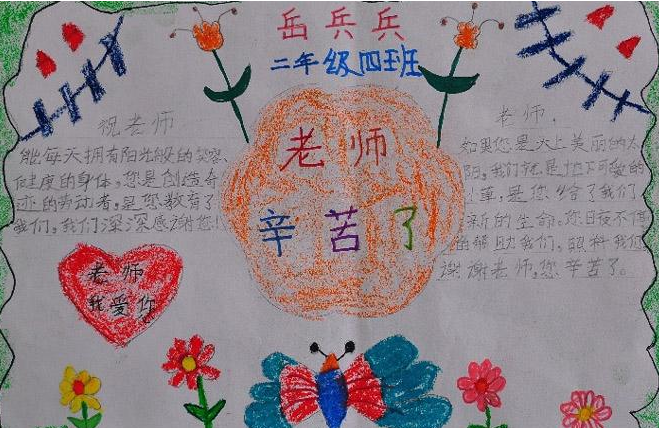 岳兵兵
二年级四班
祝老师
能每天拥有阳光般的笑容、
健度的身体,您是创造奇
迹的劳动者,是您教育了
我们,我们深深感谢您!
老师
辛苦了
老师,
如果您是天上美丽的太
阳,我们就是地下可爱的
小草,是您给了我们
新的生命。您日夜不停
的帮助我们,照料我们
谢谢老师,您辛苦了。
老师
我爱你